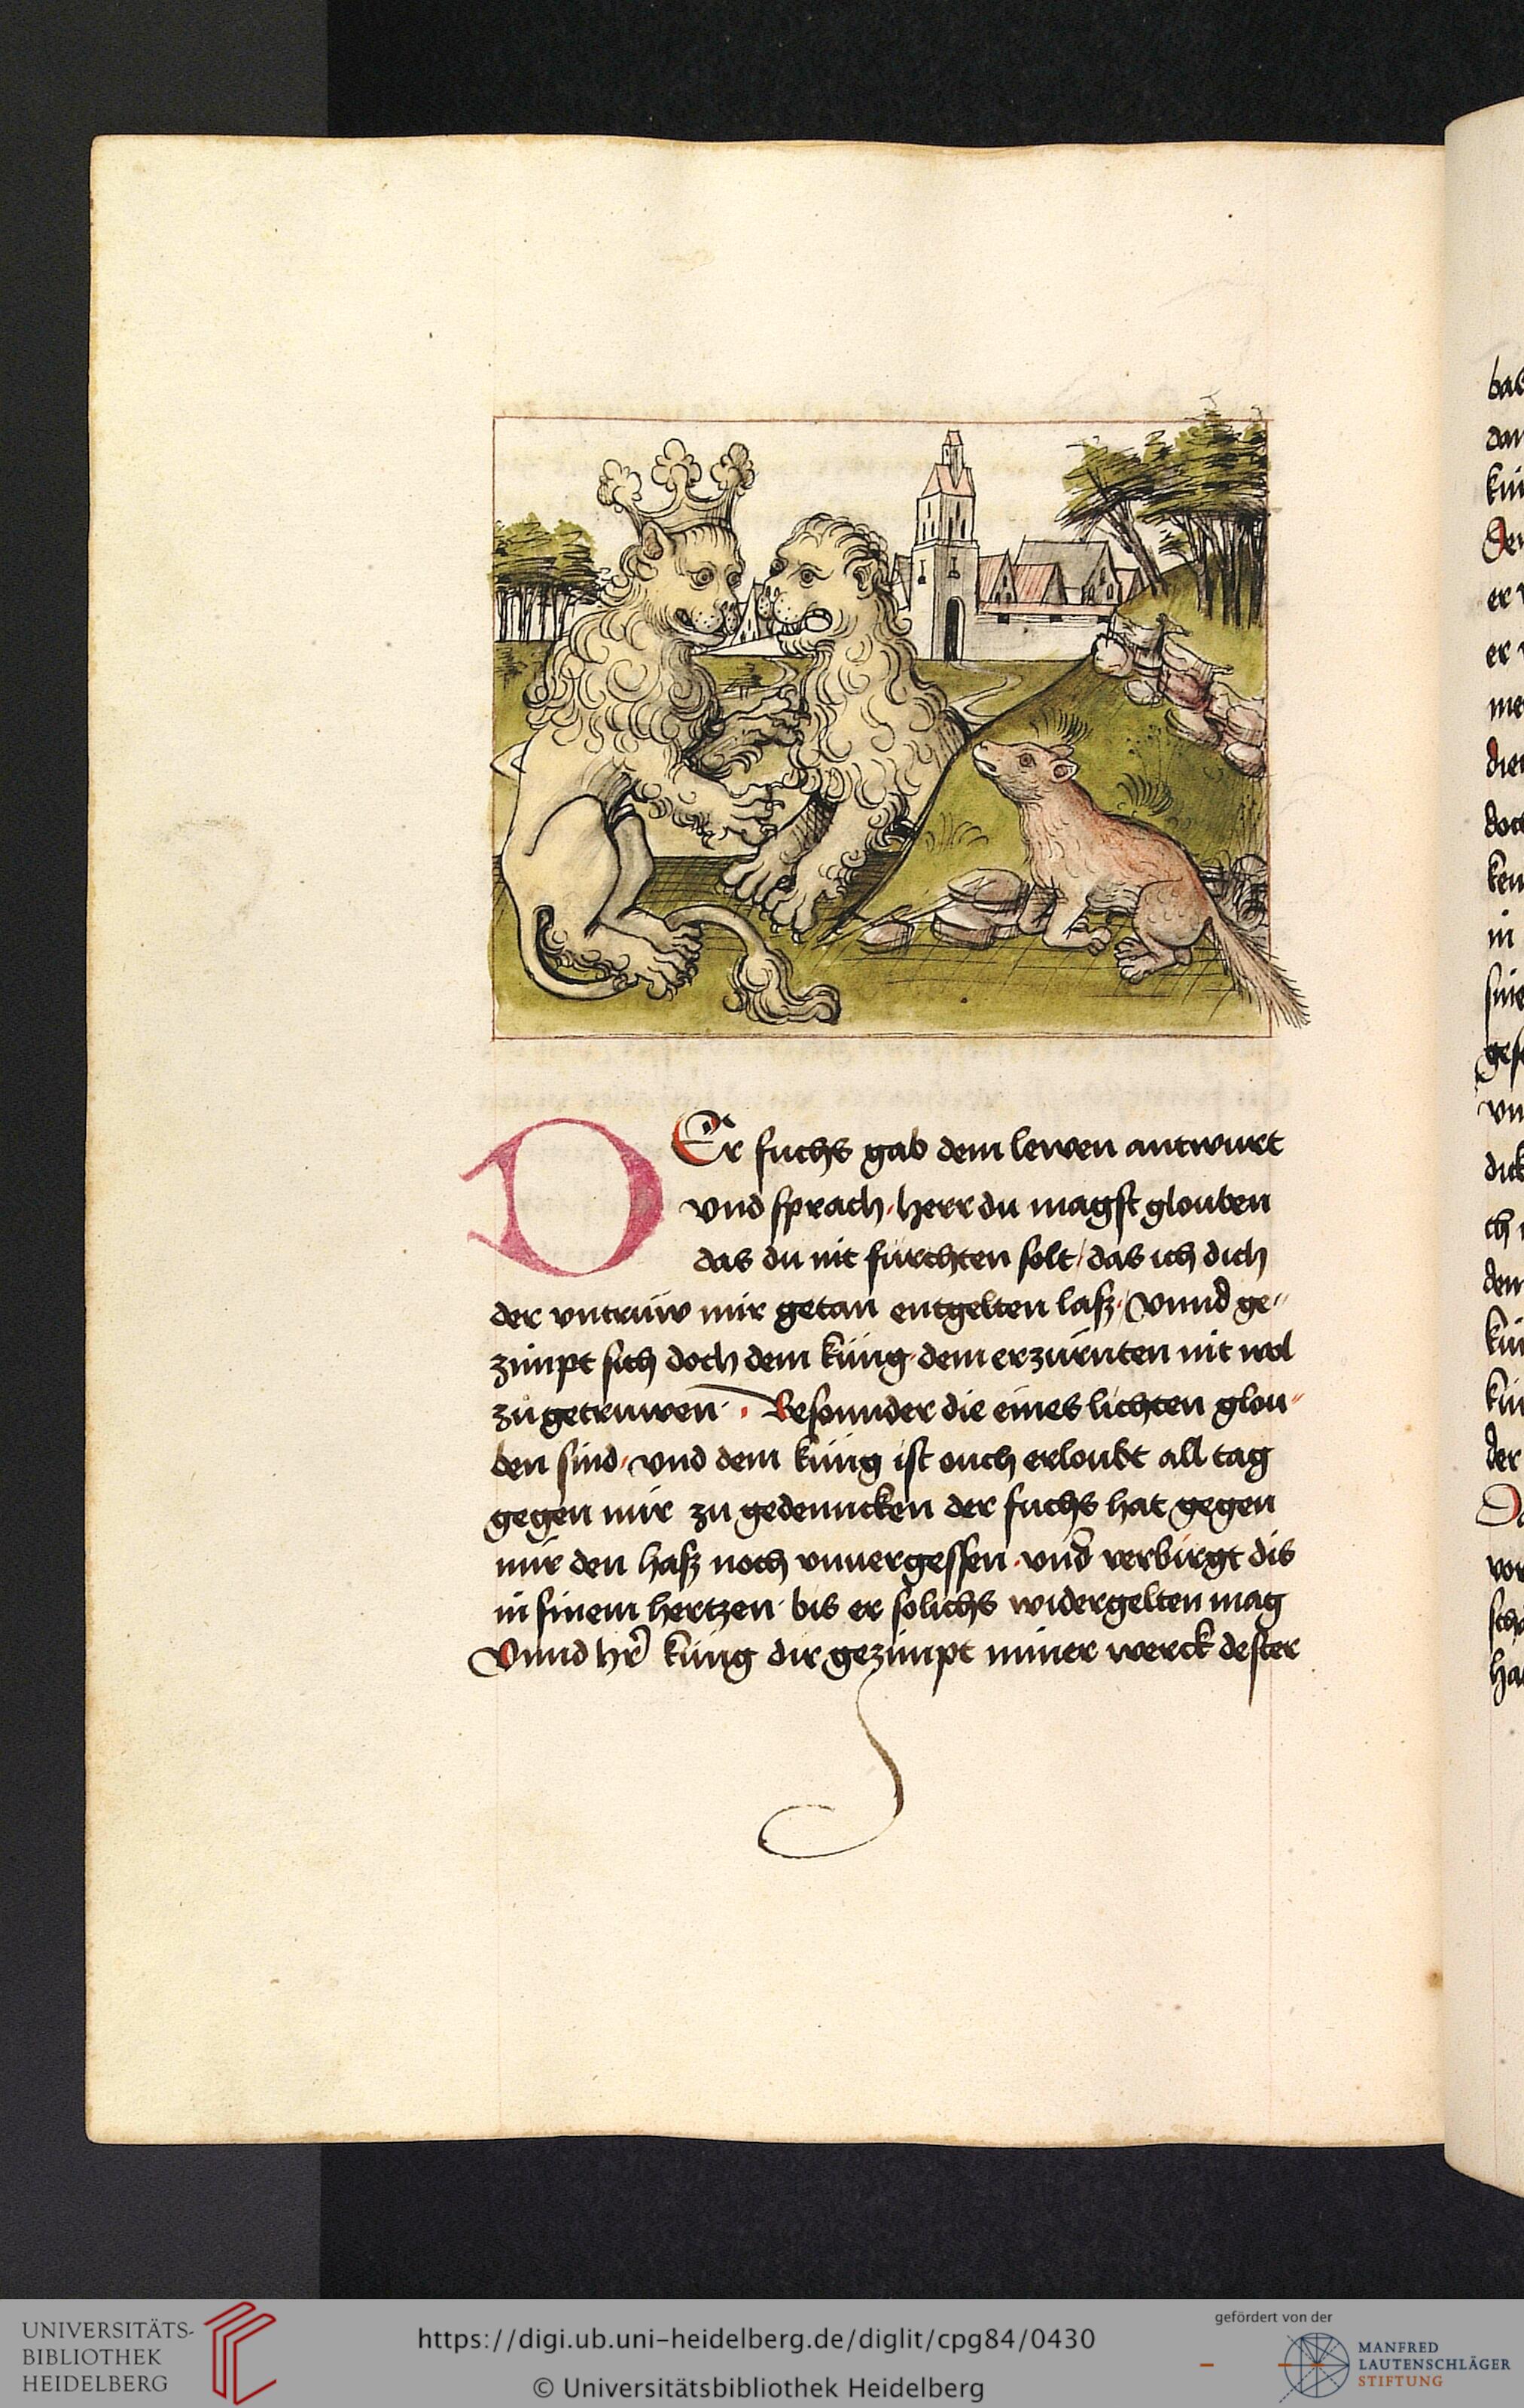 DEr fuchs gab dem lewen antwurt
vnd sprach, herr du magst glouben
das du nit fürchten solt / das ich dich
der vntrüw mir getan entgelten lasz / Vnnd ge〃
zimpt sich doch dem küng dem erzürnten nit wol
zů getruwen · Besonnder die eines lichten glou〃
ben sind, vnd dem küng ist ouch erloubt all tag
gegen mir zu gedenncken der fuchs hat gegen
mir den hasz noch vnuergessen, vnd verbirgt dis
in sinem hertzen bis er solichs widergelten mag
Vnnd hr̄ küng dir gezimpt miner werck dester
UNIVERSITÄTS-
BIBLIOTHEK
HEIDELBERG
https://digi.ub.uni-heidelberg.de/diglit/cpg84/0430
© Universitätsbibliothek Heidelberg
gefördert von der
MANFRED
LAUTENSCHLÄGER
STIFTUNG